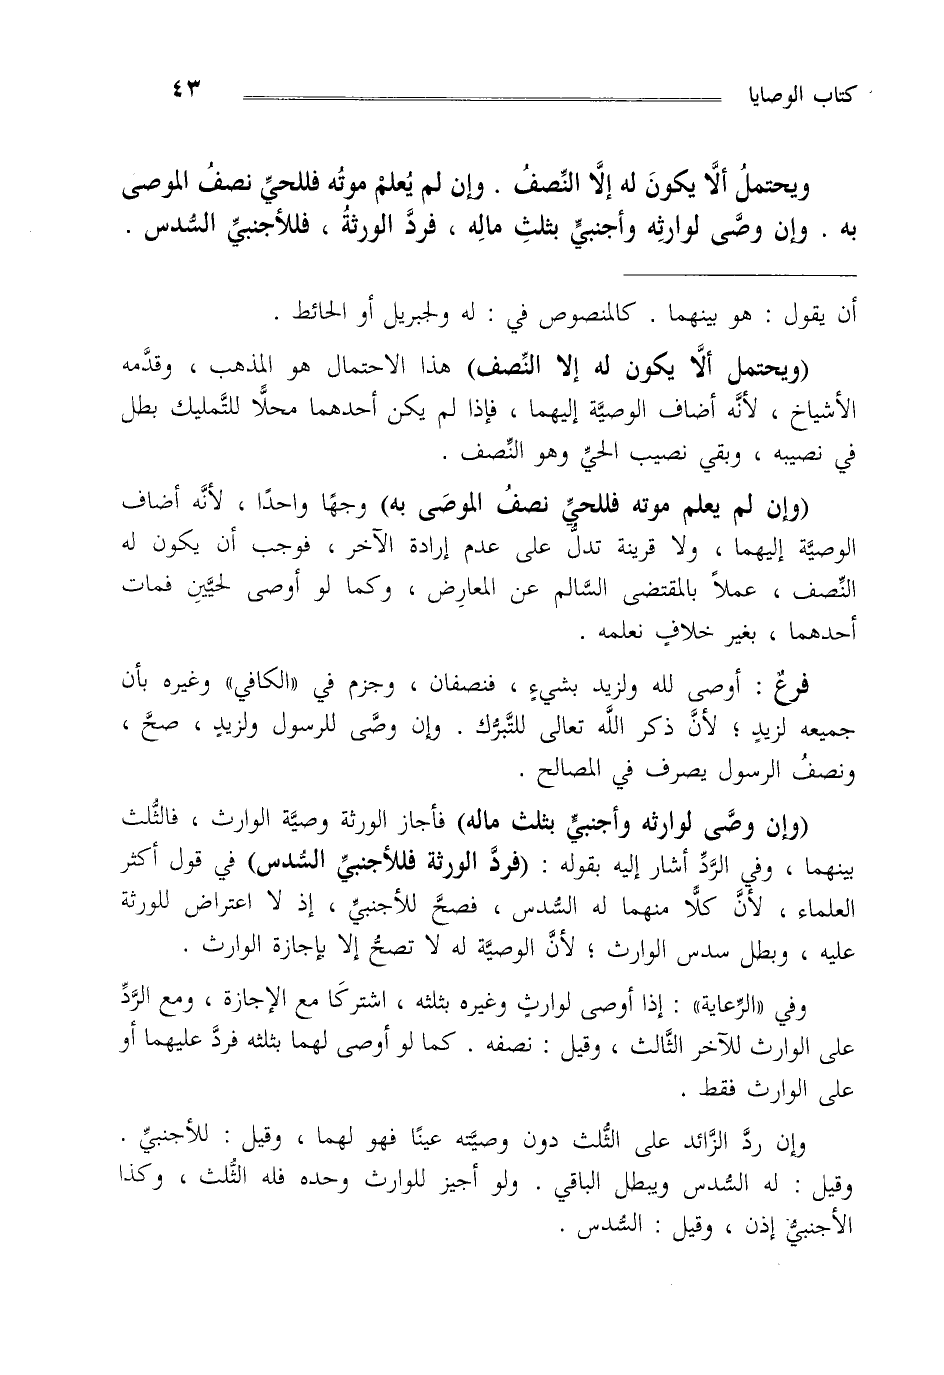 كتاب الوصايا ٤٣
ويحتملُ ألَّا يكونَ له إلَّا النِّصفُ . وإن لم يُعلمْ موتُه فللحيِّ نصفُ الموصى
به . وإن وصَّى لوارثِه وأجنبيٍّ بثلثِ مالِه ، فردَّ الورثةُ ، فللأجنبيِّ السُّدس .
أن يقول : هو بينهما . كالمنصوص في : له ولجبريل أو الحائط .
(ويحتمل ألَّا يكون له إلا النِّصف) هذا الاحتمال هو المذهب ، وقدَّمه
الأشياخ ، لأنَّه أضاف الوصيَّة إليهما ، فإذا لم يكن أحدهما محلًّا للتَّمليك بطل
في نصيبه ، وبقي نصيب الحيِّ وهو النِّصف .
(وإن لم يعلم موته فللحيِّ نصفُ الموصَى به) وجهًا واحدًا ، لأنَّه أضاف
الوصيَّة إليهما ، ولا قرينة تدلُّ على عدم إرادة الآخر ، فوجب أن يكون له
النِّصف ، عملاً بالمقتضى السَّالم عن المعارِض ، وكما لو أوصى لحيَّينِ فمات
أحدهما ، بغير خلافٍ نعلمه .
فرعٌ : أوصى لله ولزيد بشيءٍ ، فنصفان ، وجزم في «الكافي» وغيره بأن
جميعه لزيدٍ ؛ لأنَّ ذكر اللَّه تعالى للتَّبرُّك . وإن وصَّى للرسول ولزيدٍ ، صحَّ ،
ونصفُ الرسول يصرف في المصالح .
(وإن وصَّى لوارثه وأجنبيٍّ بثلث ماله) فأجاز الورثة وصيَّة الوارث ، فالثُّلث
بينهما ، وفي الرَّدِّ أشار إليه بقوله : (فردَّ الورثة فللأجنبيِّ السُّدس) في قول أكثر
العلماء ، لأنَّ كلًّا منهما له السُّدس ، فصحَّ للأجنبيِّ ، إذ لا اعتراض للورثة
عليه ، وبطل سدس الوارث ؛ لأنَّ الوصيَّة له لا تصحُّ إلا بإجازة الوارث .
وفي «الرِّعاية» : إذا أوصى لوارثٍ وغيره بثلثه ، اشتركَا مع الإجازة ، ومع الرَّدِّ
على الوارث للآخر الثَّالث ، وقيل : نصفه . كما لو أوصى لهما بثلثه فردَّ عليهما أو
على الوارث فقط .
وإن ردَّ الزَّائد على الثُّلث دون وصيَّته عينًا فهو لهما ، وقيل : للأجنبيِّ .
وقيل : له السُّدس ويبطل الباقي . ولو أجيز للوارث وحده فله الثُّلث ، وكذا
الأجنبيُّ إذن ، وقيل : السُّدس .